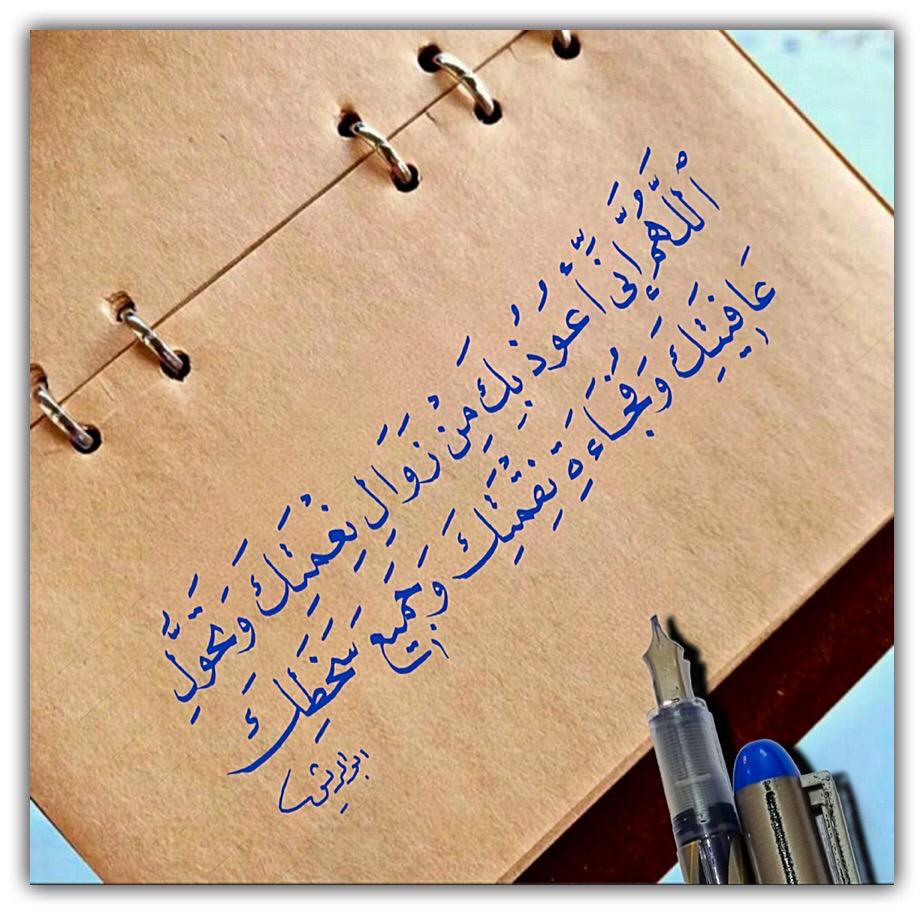 اَللّٰهُمَّ إِنِّي أَعُوذُ بِكَ مِنْ زَوَالِ نِعْمَتِكَ وَتَحَوُّلِ
عَافِيَتِكَ وَفُجَاءَةِ نِقْمَتِكَ وَجَمِيعِ سَخَطِكَ